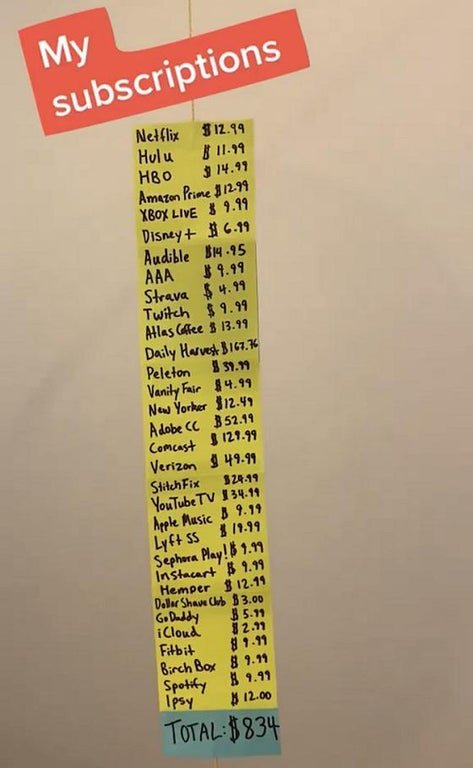 My
subscriptions
Netflix $12.99
Hulu $11.99
HBO $14.99
Amazon Prime $12.99
XBOX LIVE $9.99
Disney+ $6.99
Audible $14.95
AAA $9.99
Strava $4.99
Twitch $9.99
Atlas Coffee $13.99
Daily Harvest $167.76
Peleton $39.99
Vanity Fair $4.99
New Yorker $12.49
Adobe CC $52.99
Comcast $129.99
Verizon $49.99
StitchFix $24.99
YouTubeTV $34.99
Apple Music $9.99
Lyft SS $19.99
Sephora Play! $9.99
Instacart $9.99
Hemper $12.99
Dollar Shave Club $3.00
GoDaddy $5.99
iCloud $2.99
Fitbit $9.99
Birch Box $9.99
Spotify $9.99
Ipsy $12.00
TOTAL: $834